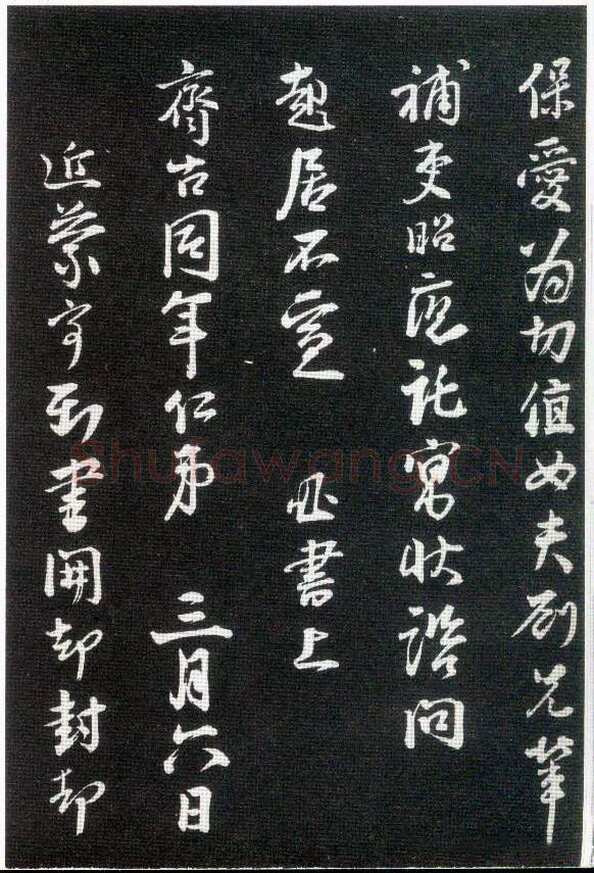 保愛為切值女夫劉兄
補吏昭應託寫狀諮問
起居不宣 書上
齊古同年仁弟 三月六日
近蒙寄到書開却封却
Shufawang.CN